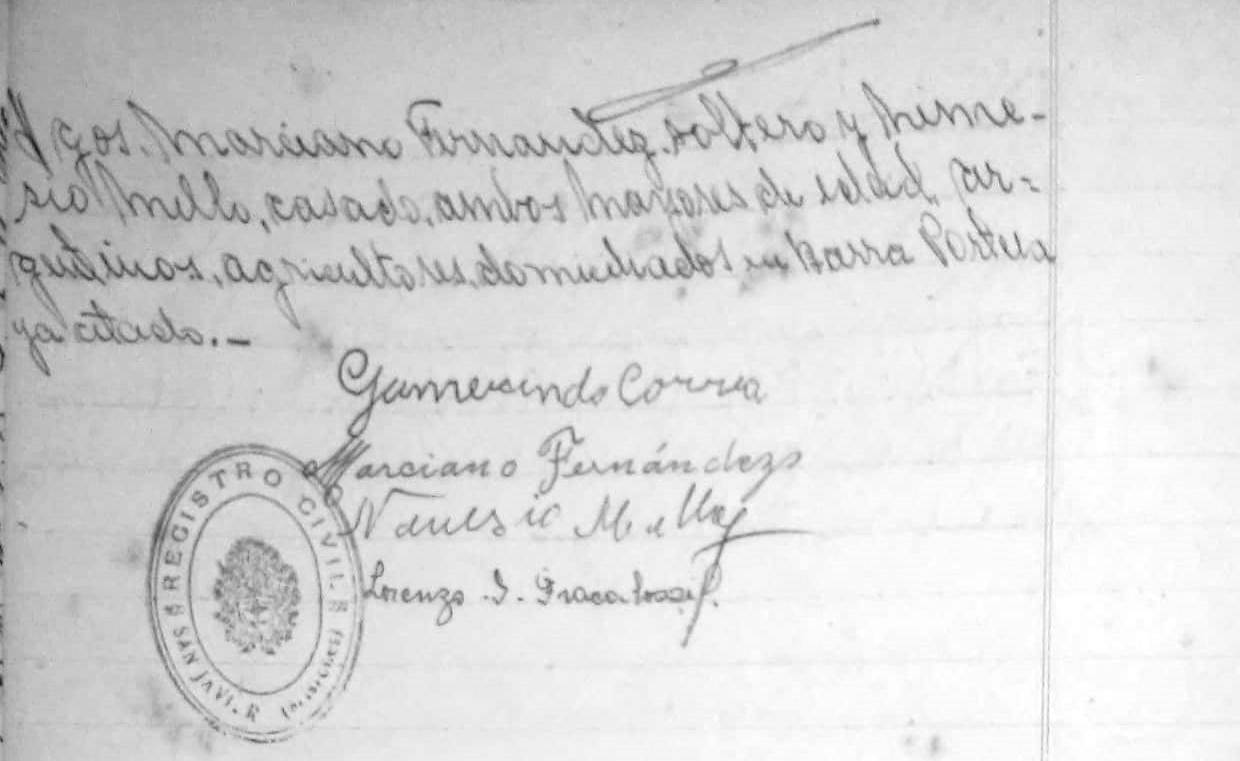 tgos, Marciano Fernandez, soltero y Nime-
sio Mello, casado, ambos mayores de edad, ar=
gentinos, agricultores, domiciliados en Barra Portera
ya citado.-
Gumersindo Correa
Marciano Fernández
Lorenzo
REGISTRO CIVIL
SAN JAVIER (MISIONES)